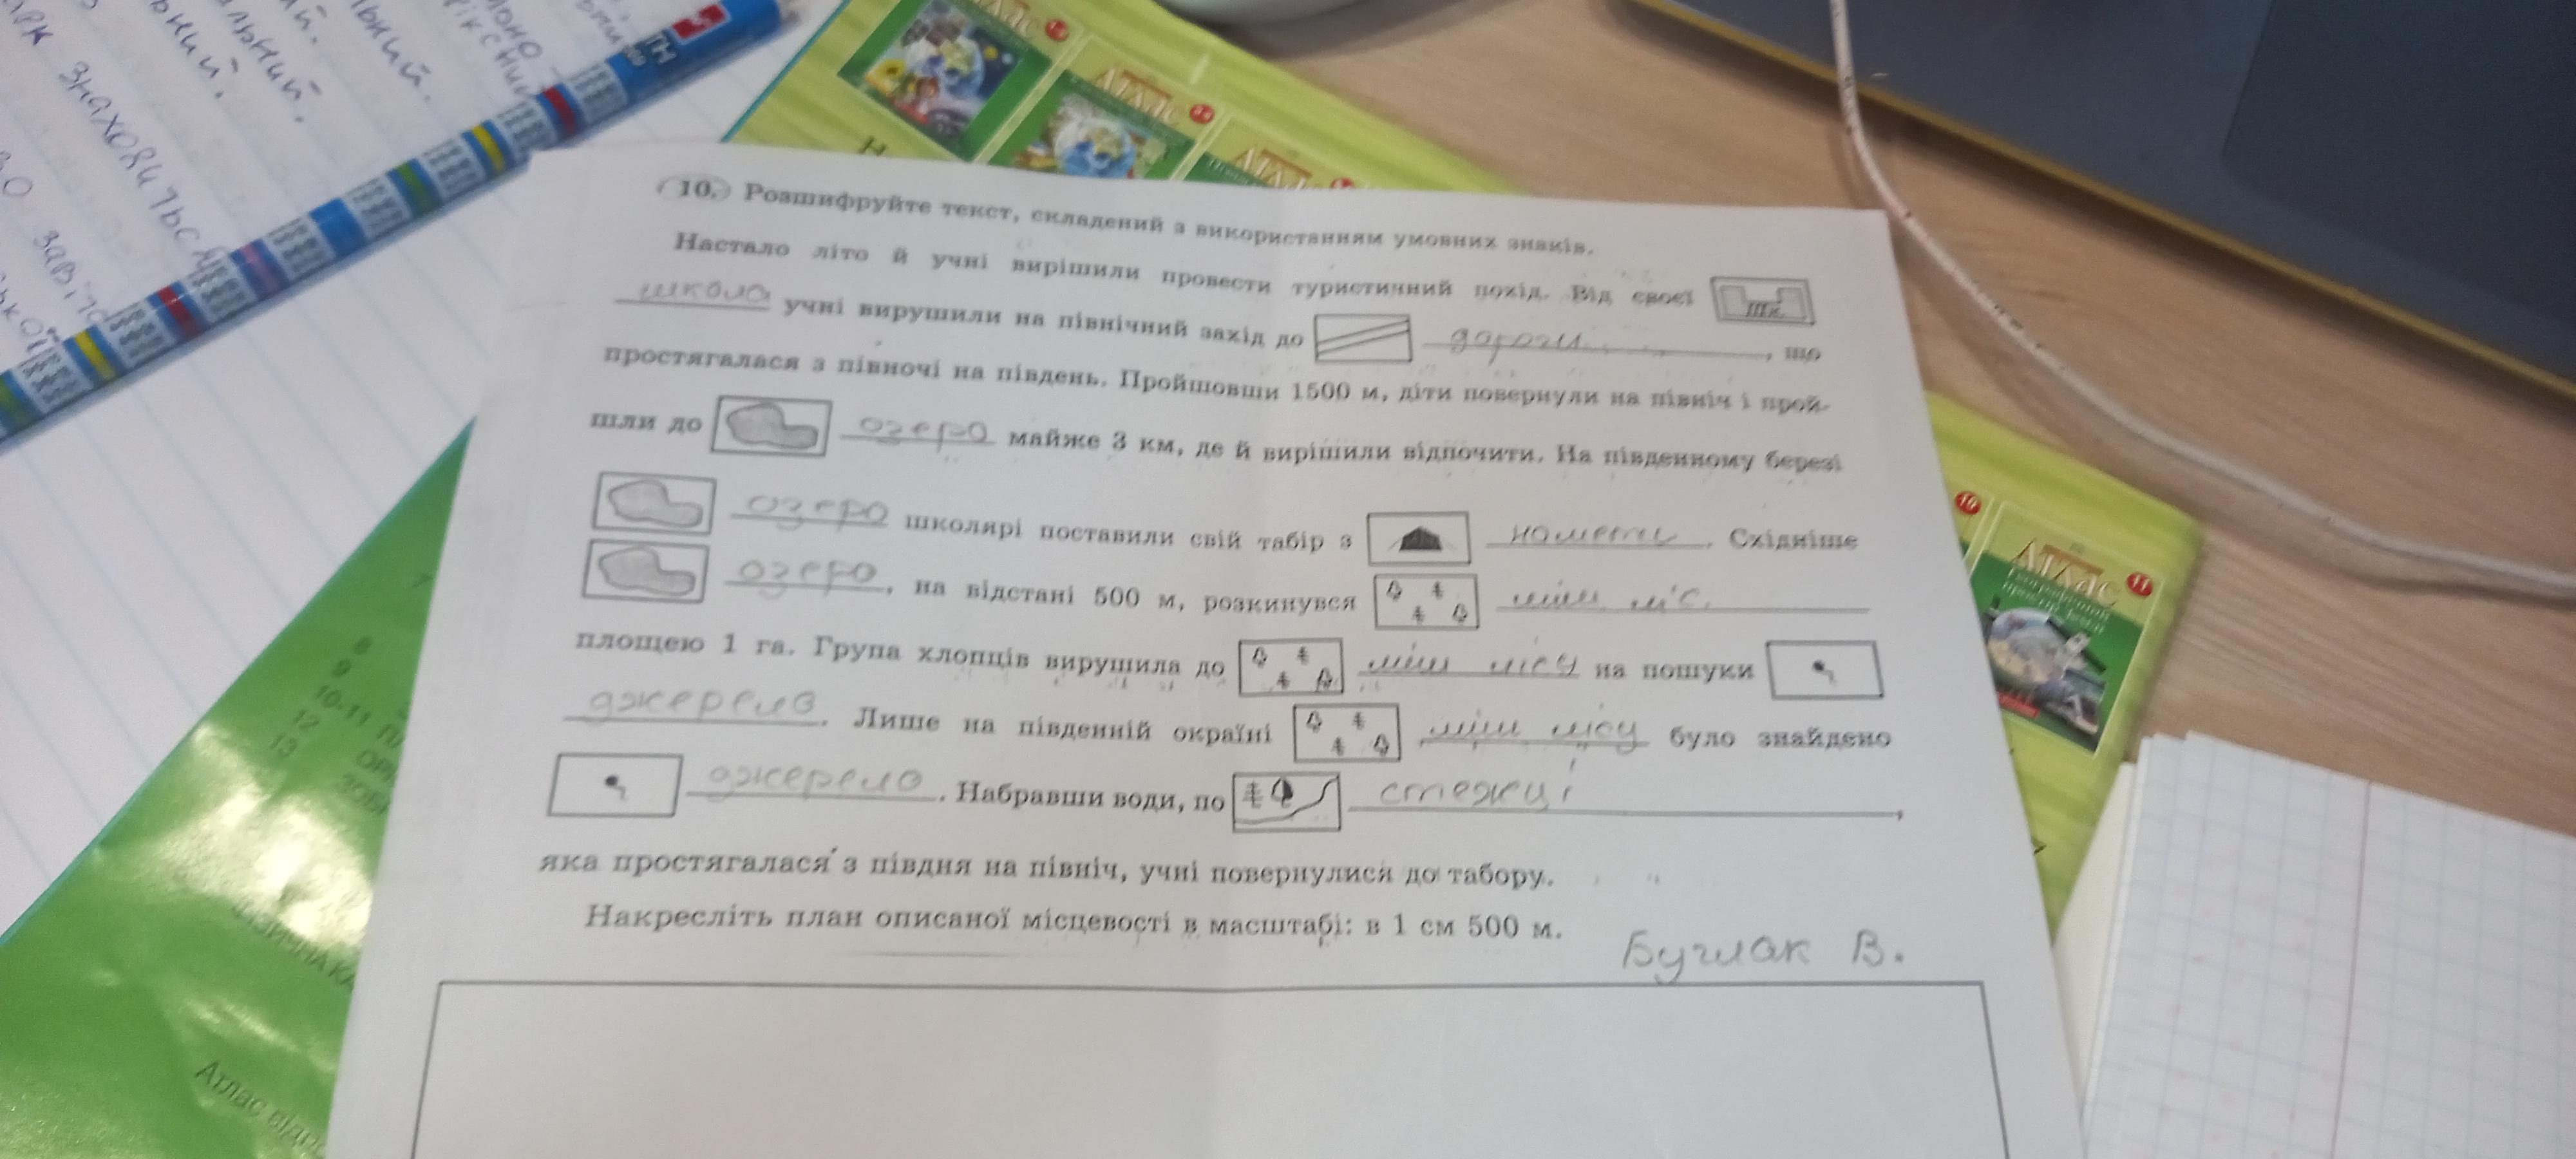 арк знаходиться
10. Розшифруйте текст, складений з використанням умовних знаків.
Настало літо й учні вирішили провести туристичний похід. Від своєї шк.
школа учні вирушили на північний захід до дороги, що
простягалася з півночі на південь. Пройшовши 1500 м, діти повернули на північ і прой-
шли до озеро майже 3 км, де й вирішили відпочити. На південному березі
озеро школярі поставили свій табір з намети. Східніше
озеро, на відстані 500 м, розкинувся міш ліс.
площею 1 га. Група хлопців вирушила до міш лісу на пошуки
джерела. Лише на південній окраїні міш лісу було знайдено
джерело. Набравши води, по стежці,
яка простягалася з півдня на північ, учні повернулися до табору.
Накресліть план описаної місцевості в масштабі: в 1 см 500 м.
Буглак В.
Атлас
Атлас
Атлас
Атлас
10
11
7
8
9
10-11
12
13
Атлас